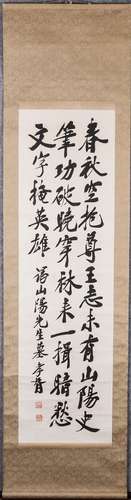 春秋空抱尊王志未有山陽史
筆功破曉穿林來一揖暗愁
文字掩英雄 謁山陽先生墓 孝胥